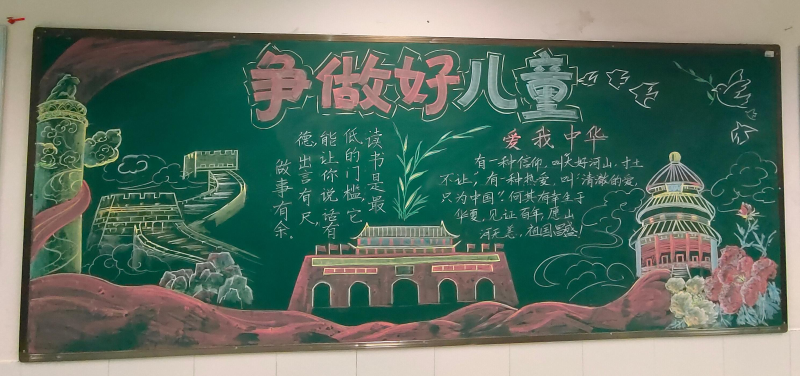 争做好儿童
读书是最
低的门槛,它
能让你说话有
德,出言有尺,
做事有余.
爱我中华
有一种信仰,叫大好河山,寸土
不让,有一种热爱,叫“清澈的爱,
只为中国”.何其有幸生于
华夏,见证百年,愿山
河无恙,祖国昌盛